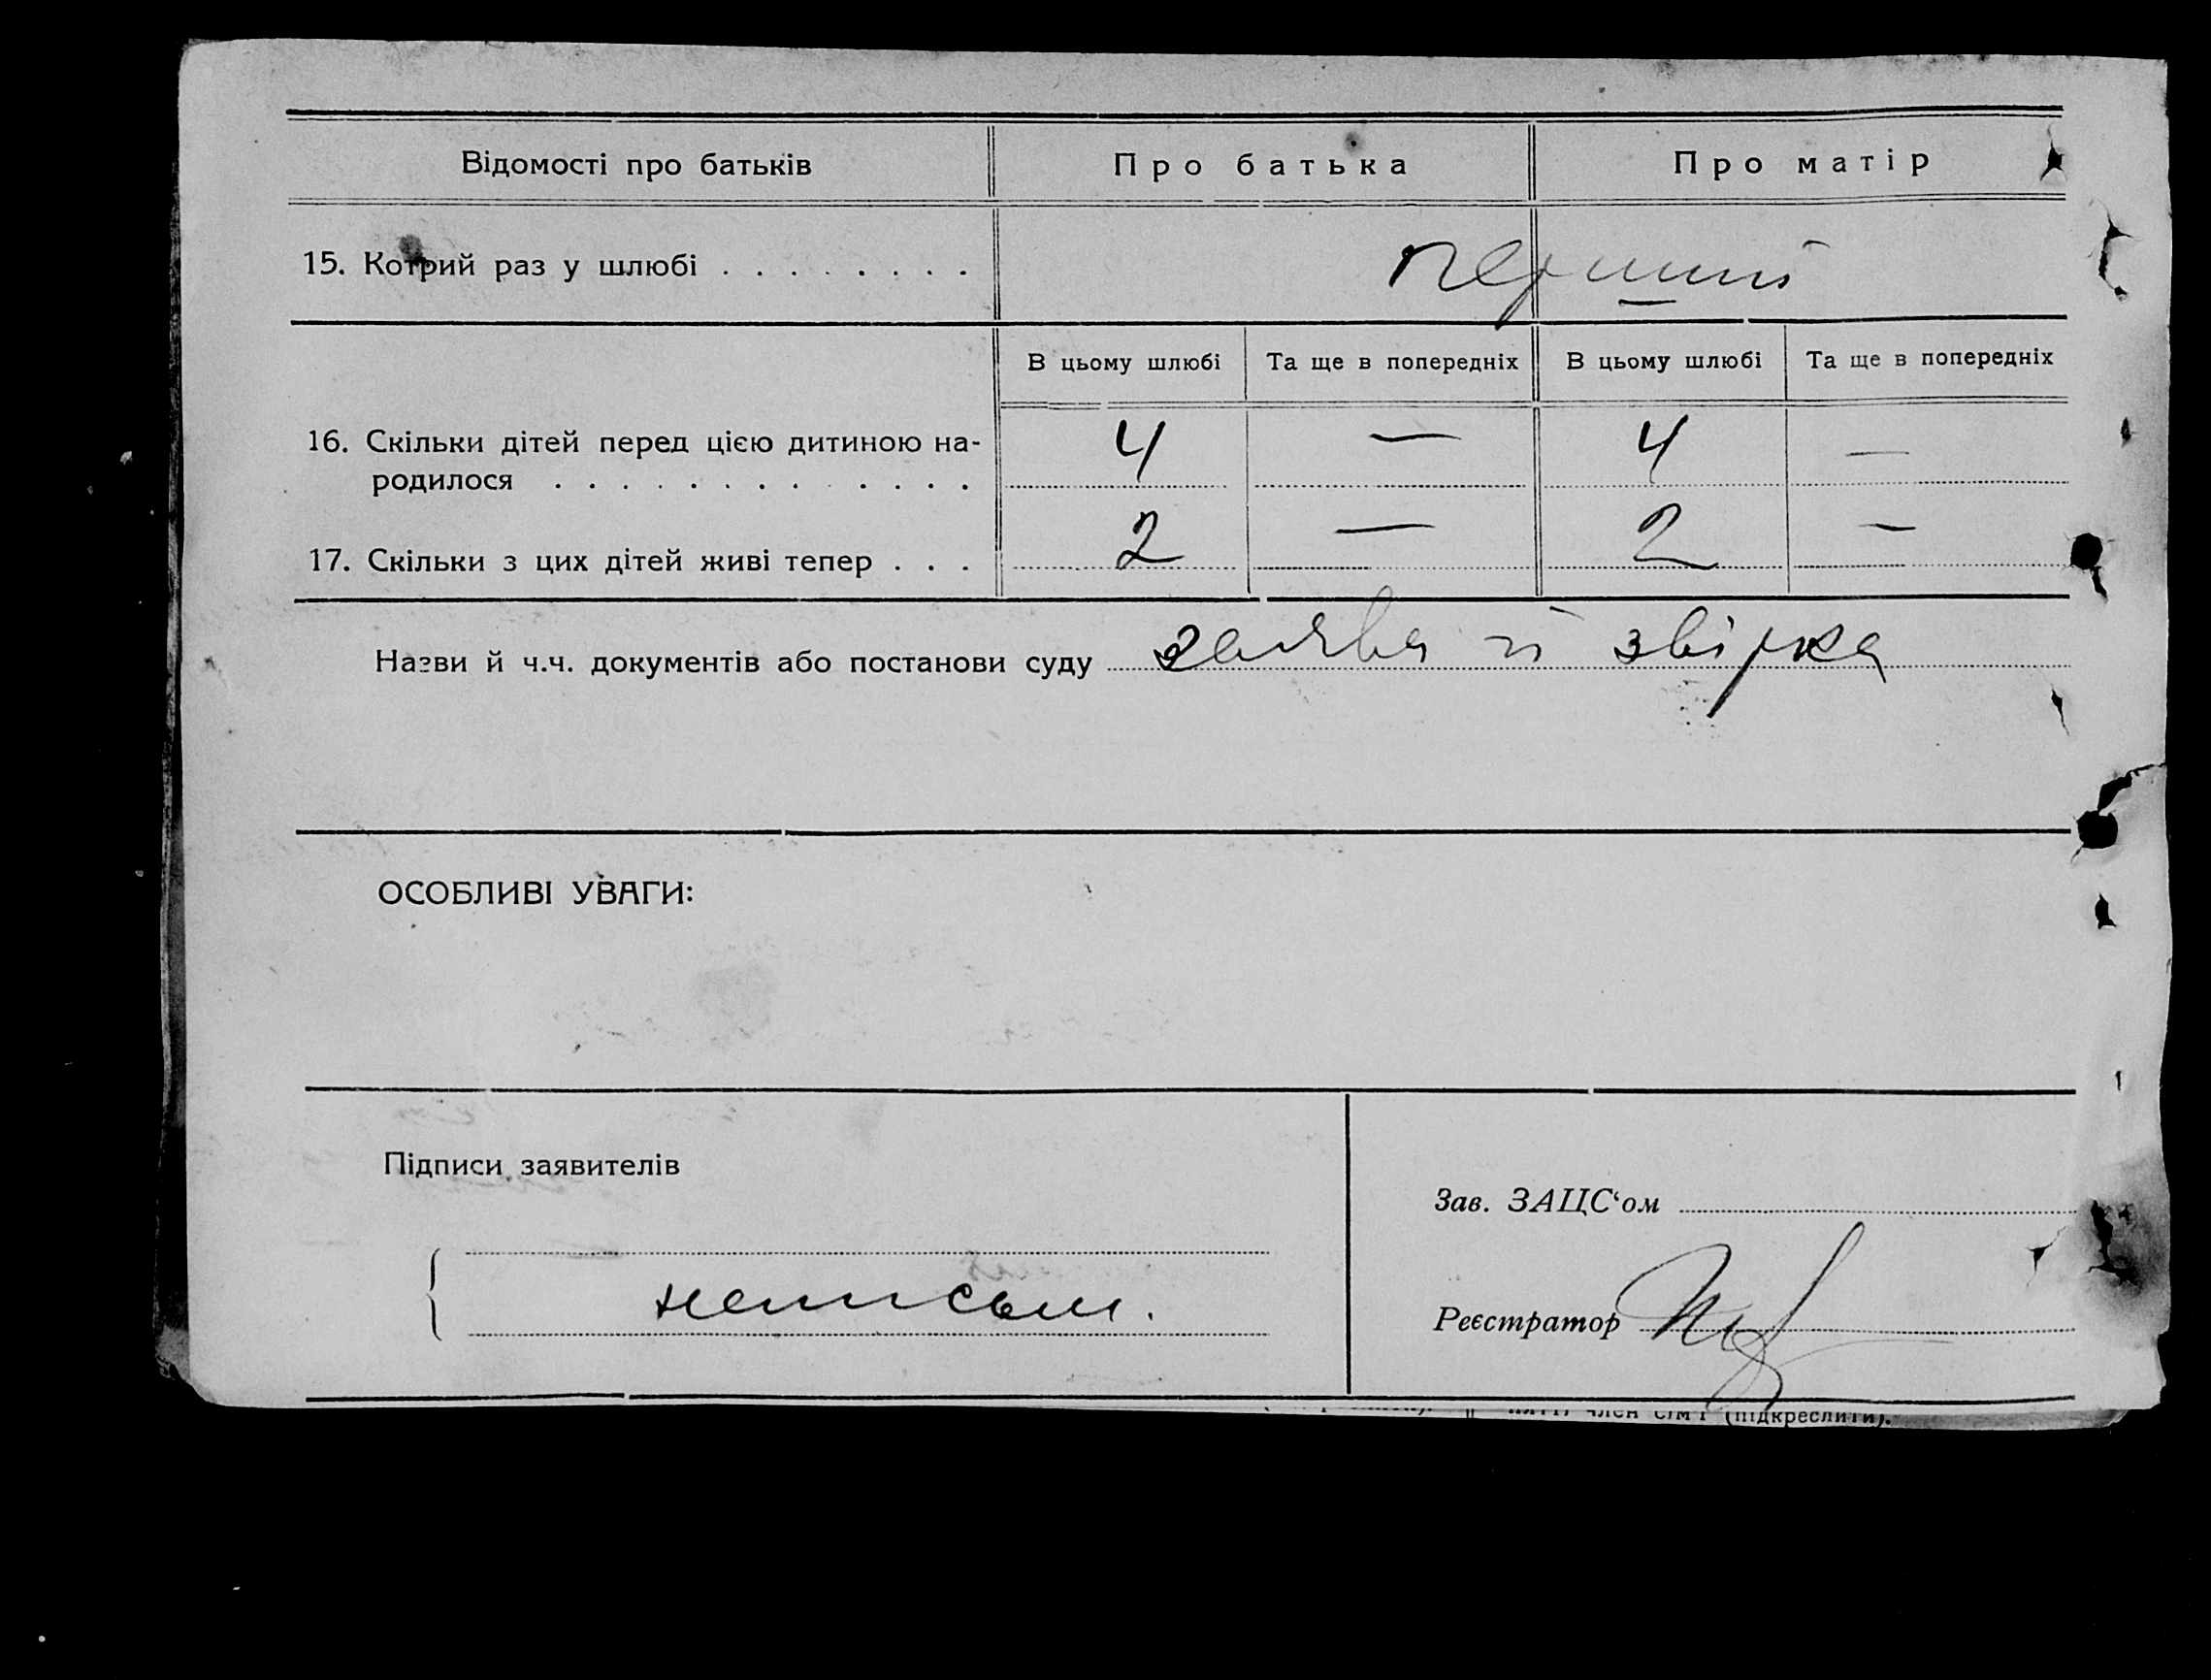 Відомості про батьків Про батька Про матір
15. Котрий раз у шлюбі . . . . . . . . перший
В цьому шлюбі Та ще в попередніх В цьому шлюбі Та ще в попередніх
16. Скільки дітей перед цією дитиною на-
родилося . . . . . . . . . . . . . 4 — 4 —
17. Скільки з цих дітей живі тепер . . . 2 — 2 —
Назви й ч.ч. документів або постанови суду заява й звірка
ОСОБЛИВІ УВАГИ:
Підписи заявителів
Зав. ЗАЦС‘ом
неписьм.
Реєстратор
член сім'ї (підкреслити).